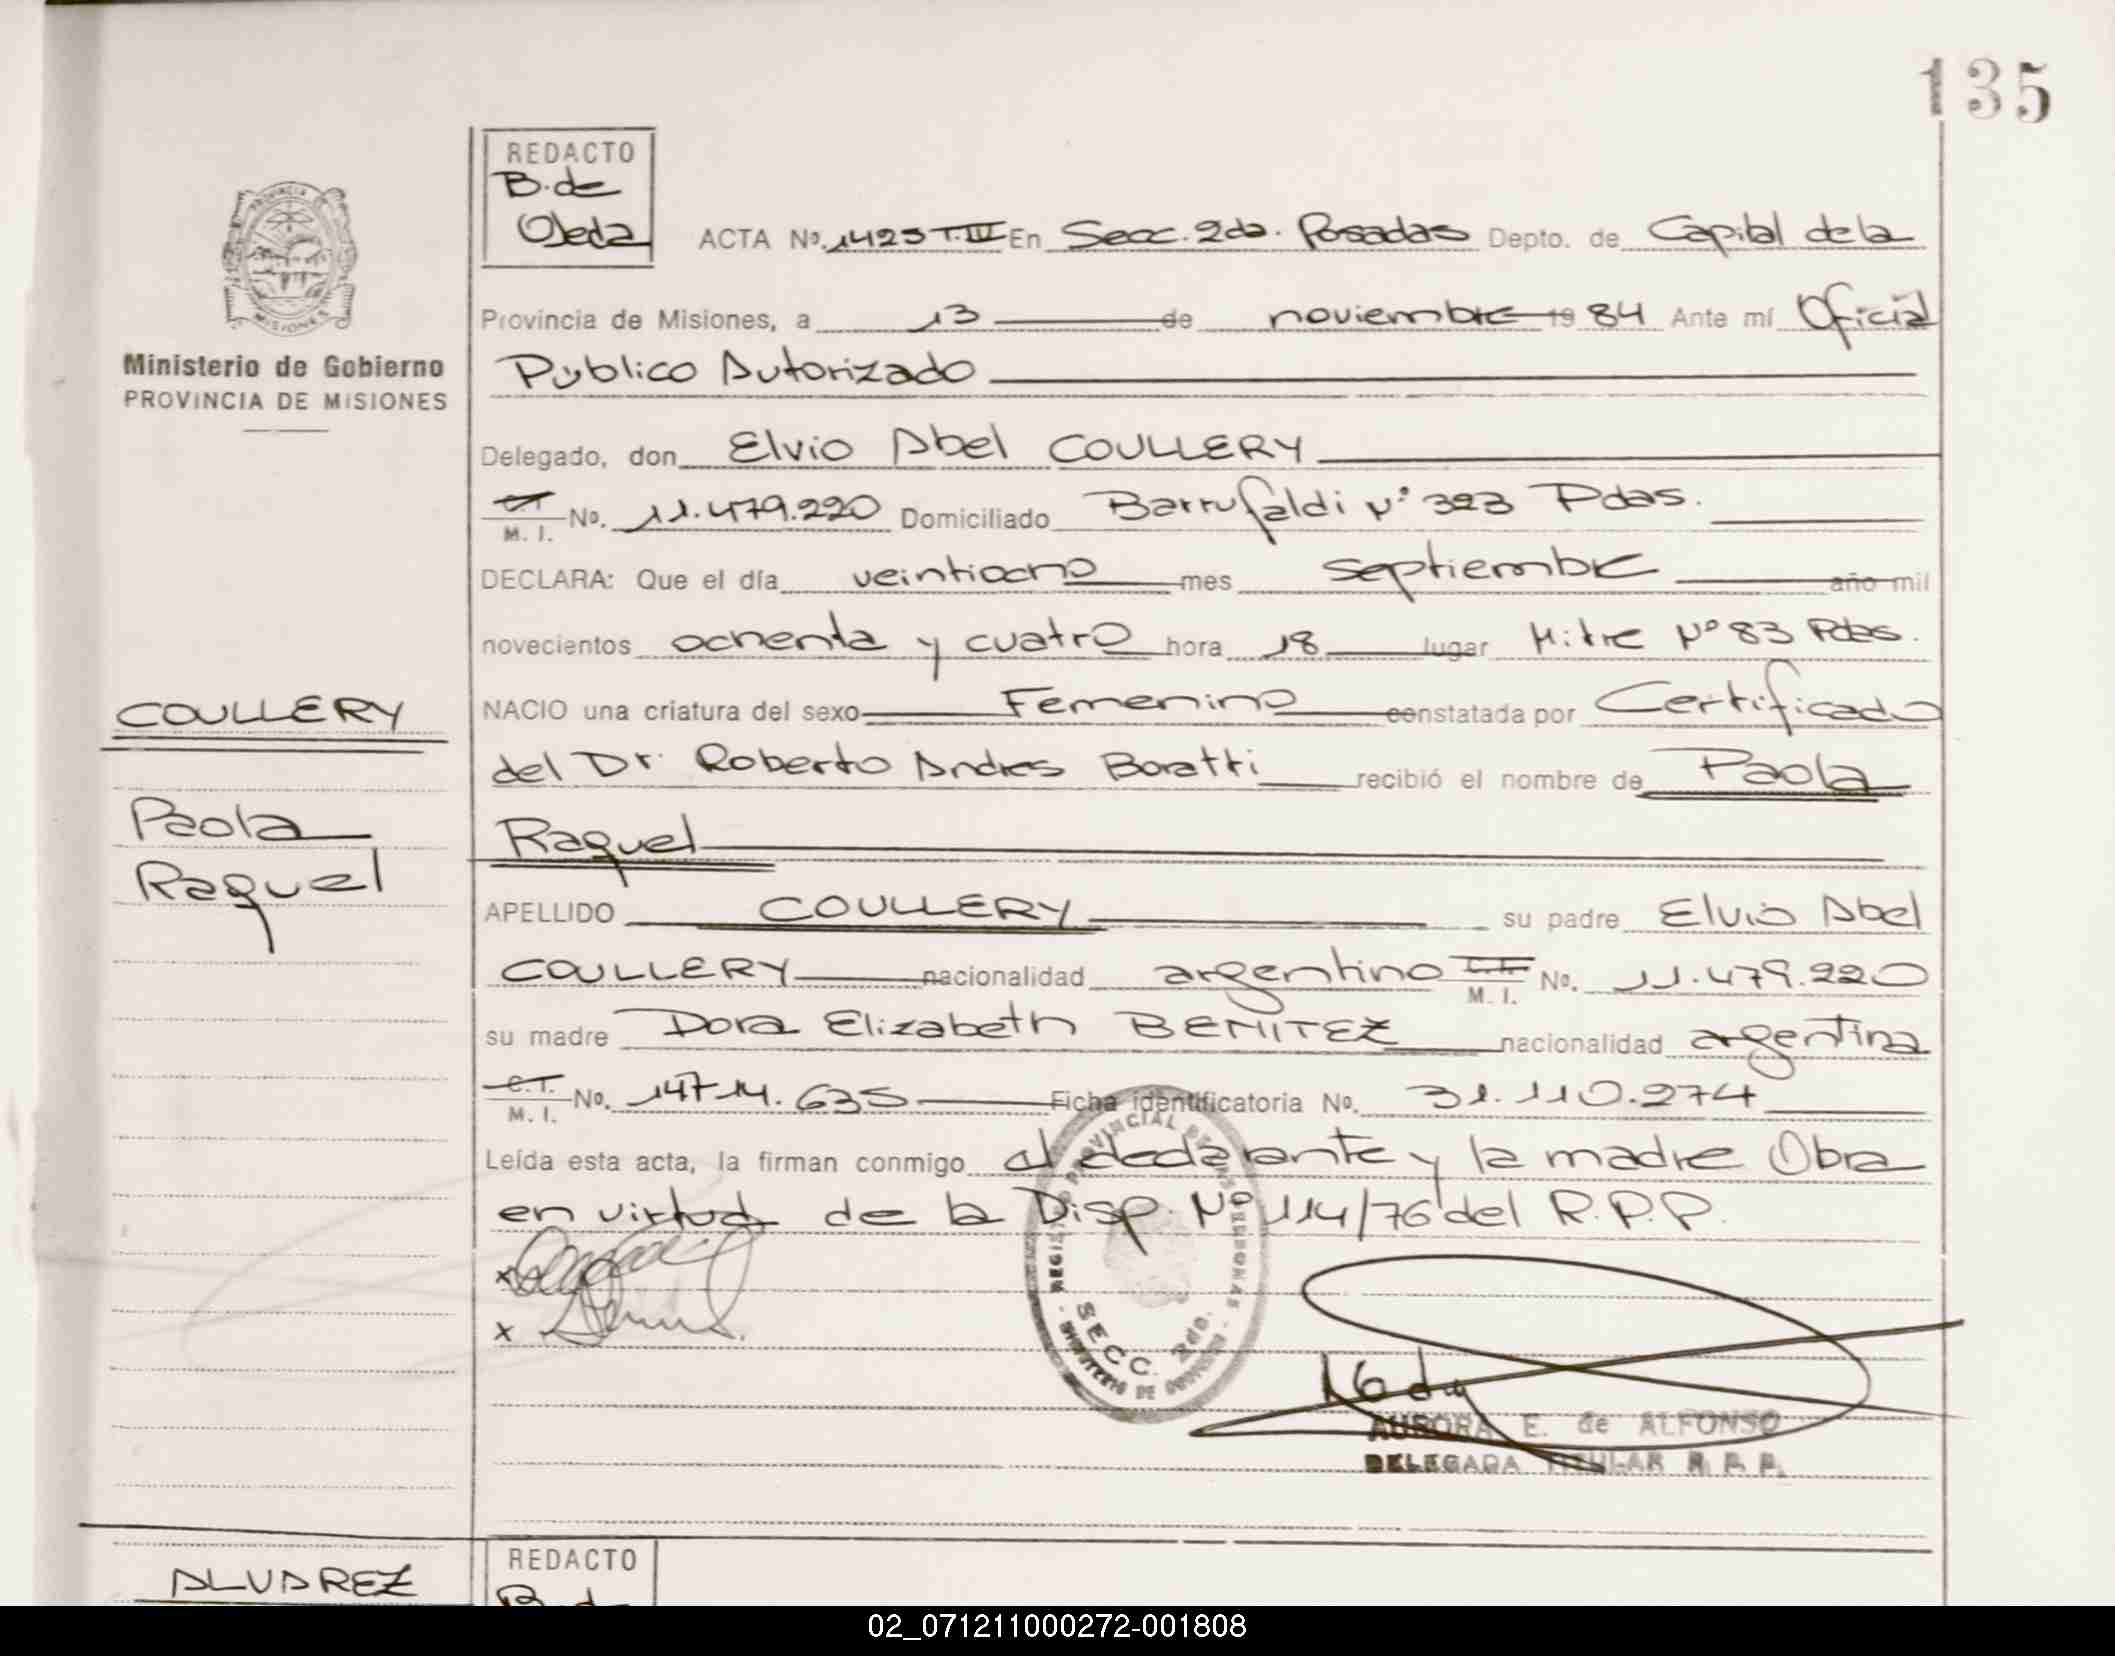 135
REDACTO
B. de
Ojeda
ACTA No. 1423 T. III En Secc. 2da. Posadas Depto. de Capital de la
Provincia de Misiones, a 13 de noviembre 19 84 Ante mí Oficial
Público Autorizado
Ministerio de Gobierno
PROVINCIA DE MISIONES
Delegado, don Elvio Abel COULLERY
M. I. No. 11.479.220 Domiciliado Barrufaldi Nº 323 Pdas.
DECLARA: Que el día veintiocho mes septiembre año mil
novecientos ochenta y cuatro hora 18 lugar Mitre Nº 83 Pdas.
COULLERY
NACIO una criatura del sexo Femenino constatada por Certificado
del Dr. Roberto Andres Boratti recibió el nombre de Paola
Paola
Raquel
Raquel
APELLIDO COULLERY su padre Elvio Abel
COULLERY nacionalidad argentino C.I. M. I. No. 11.479.220
su madre Dora Elizabeth BENITEZ nacionalidad argentina
C.I. M. I. No. 14714.635 Ficha identificatoria No. 31.110.274
Leída esta acta, la firman conmigo el declarante y la madre Obra
en virtud de la Disp. Nº 114/76 del R.P.P.
x
x
REGISTRO PROVINCIAL DE LAS PERSONAS
SECC. 2da.
MINISTERIO DE GOBIERNO
AURORA E. de ALFONSO
DELEGADA TITULAR R. P. P.
ALVAREZ
REDACTO
B. de
02_071211000272-001808